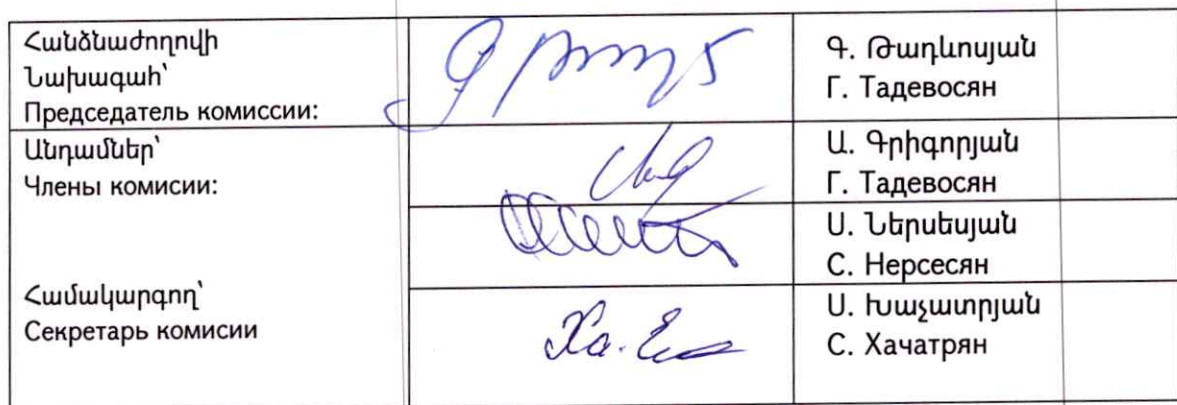 Հանձնաժողովի
Նախագահ՝
Председатель комиссии:
Գ. Թադևոսյան
Г. Тадевосян
Անդամներ՝
Члены комисии:
Ա. Գրիգորյան
Г. Тадевосян
Ս. Ներսեսյան
С. Нерсесян
Համակարգող՝
Секретарь комисии
Ս. Խաչատրյան
С. Хачатрян